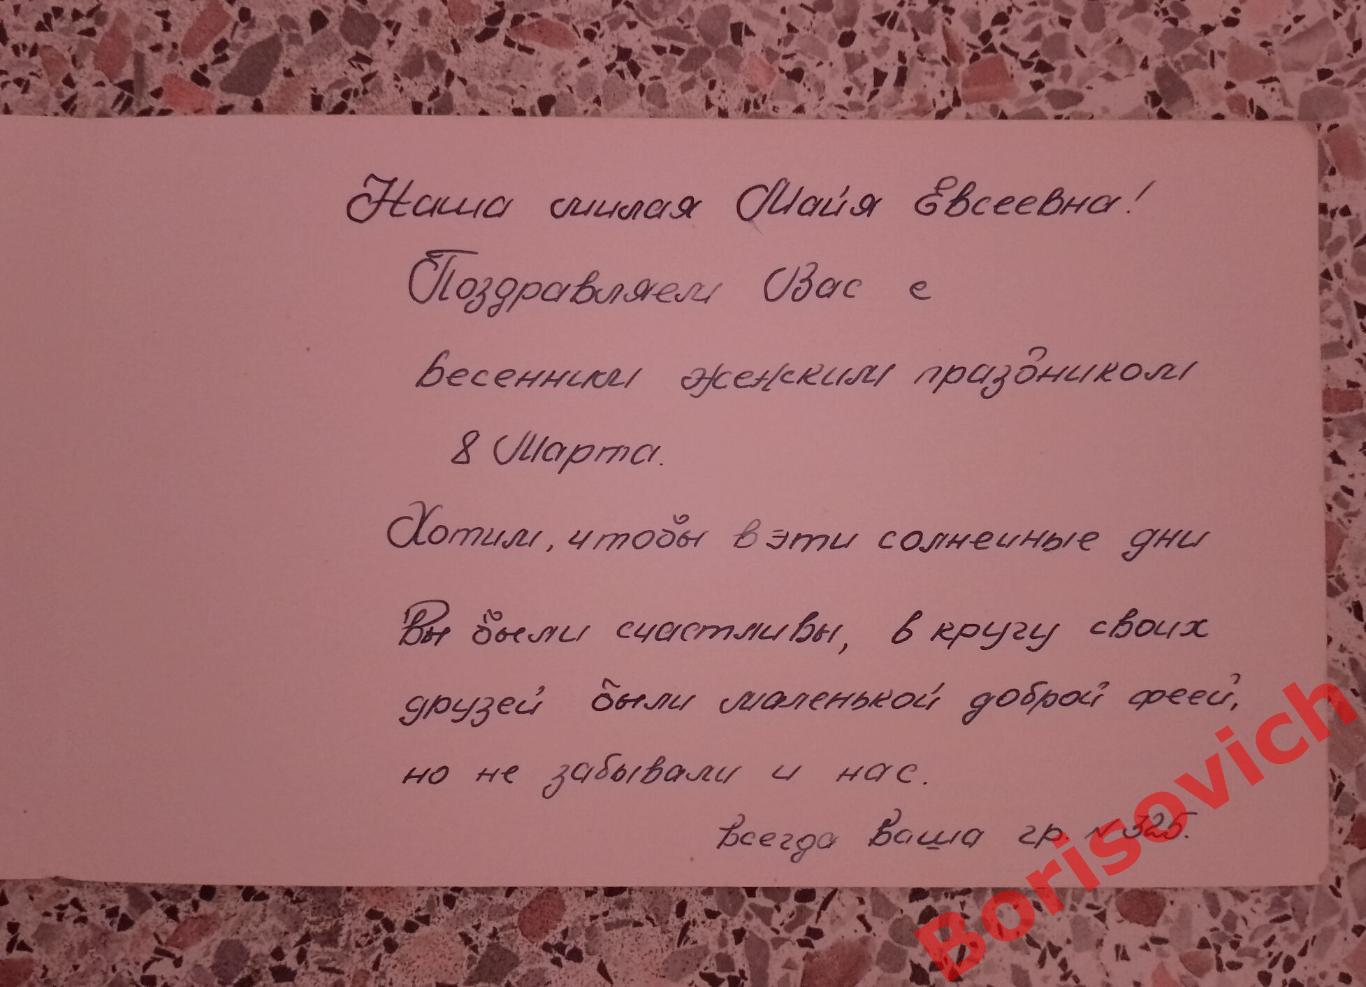 Наша милая Майя Евсеевна!
Поздравляем Вас с
весенним женским праздником
8 Марта.
Хотим, чтобы в эти солнечные дни
Вы были счастливы, в кругу своих
друзей были маленькой доброй феей,
но не забывали и нас.
Всегда Ваша гр. № 325.
Borisovich